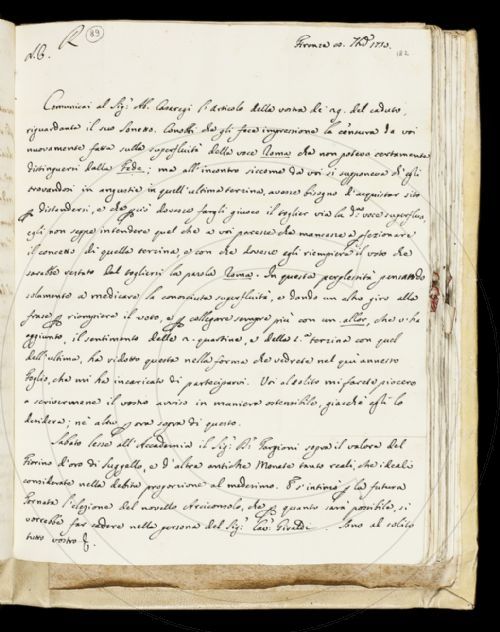 R 89
A. C.
Firenze 1773.
182
Comunicai al Sig.r Ab. Casaregi l'articolo della vostra de' 29. del caduto,
riguardante il suo Sonetto. Conobbi che gli fece impressione la censura da voi
nuovamente fatta sulla superfluità della voce Roma che non poteva certamente
distinguersi dalla Fede; ma all'incontro siccome da voi si supponeva ch'egli
trovandosi in angustie in quell'ultima terzina, avesse bisogno d'acquistar sito
p distendersi, e che più dovesse fargli giuoco il toglier via la d.a voce superflua,
egli non seppe intendere quel che a voi paresse che mancasse a pfezionare
il concetto di quella terzina, e con che dovess' egli riempiere il voto che
sarebbe restato dal togliersi la parola Roma. In questa perplessità pensando
solamente a medicare la conosciuta superfluità, e dando un altro giro alla
frase p riempiere il voto, e p collegare sempre più con un allor, che v'ha
aggiunto, il sentimento della 2. quartina, e della 1.a terzina con quel
dell'ultima, ha ridotto questa nella forma che vedrete nel quì annesso
foglio, che mi ha incaricato di parteciparvi. Voi al solito mi farete piacere
a scrivermene il vostro avviso in maniera ostensibile, giacchè egli lo
desidera; nè altro p ora sopra di questo.
Sabato lesse all'Accademia il Sig.r Targioni sopra il valore del
Fiorino d'oro di Suggello, e d'altre antiche Monete tanto reali, che ideali
considerate nella debita proporzione al medesimo. S'intimò p la futura
Tornata l'elezione del novello Arciconsolo, che p quanto sarà possibile, si
vorrebbe far cadere nella persona del Sig.r Cav.r Giraldi. Sono al solito
tutto vostro